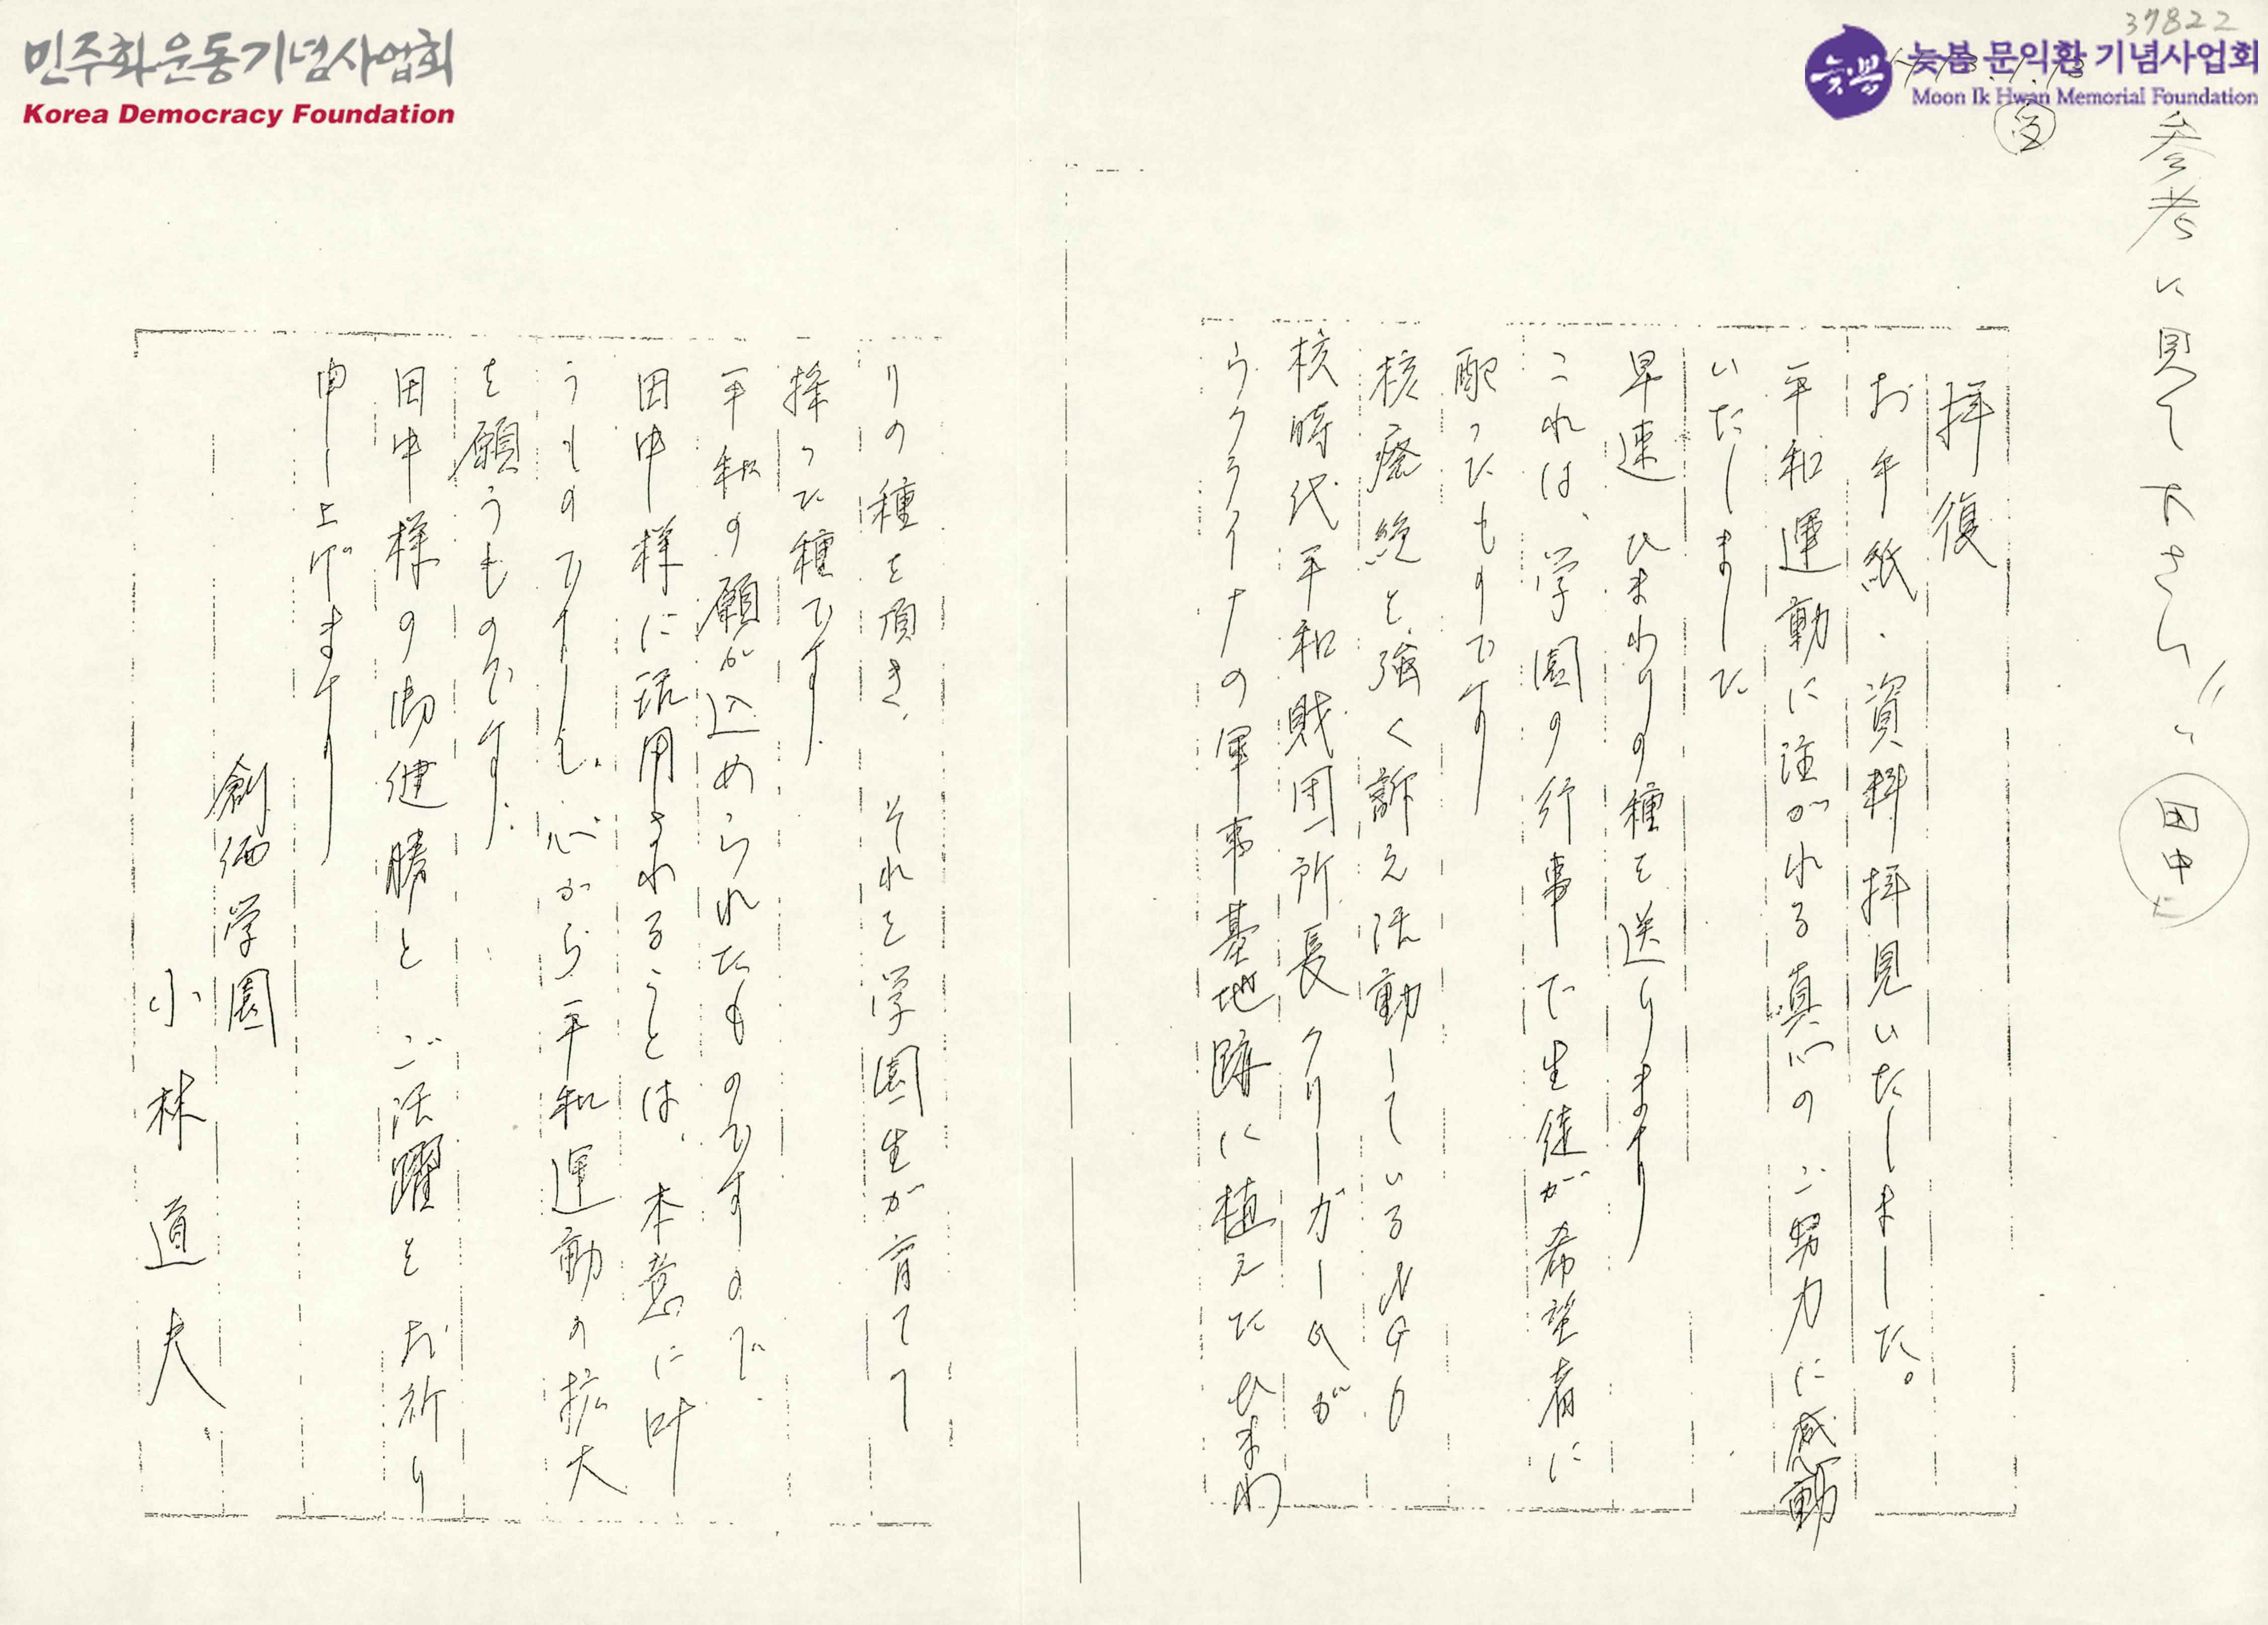 민주화운동기념사업회
Korea Democracy Foundation
37822
늦봄
늦봄 문익환 기념사업회
Moon Ik Hwan Memorial Foundation
受
参考に見て下さい〃
田中
拝復
お手紙・資料拝見いたしました。
平和運動に注がれる真心のご努力に感動
いたしました
早速ひまわりの種を送ります
これは、学園の行事で生徒が希望者に
配ったものです
核廃絶を強く訴え活動しているNGO
核時代平和財団所長クリーガー氏が
ウクライナの軍事基地跡に植えたひまわ
りの種を頂き、それを学園生が育てて
採った種です。
平和の願が込められたものですので
田中様に活用されることは、本意に叶
うものですし、心から平和運動の拡大
を願うものです。
田中様の御健勝とご活躍をお祈り
申し上げます
創価学園
小林道夫